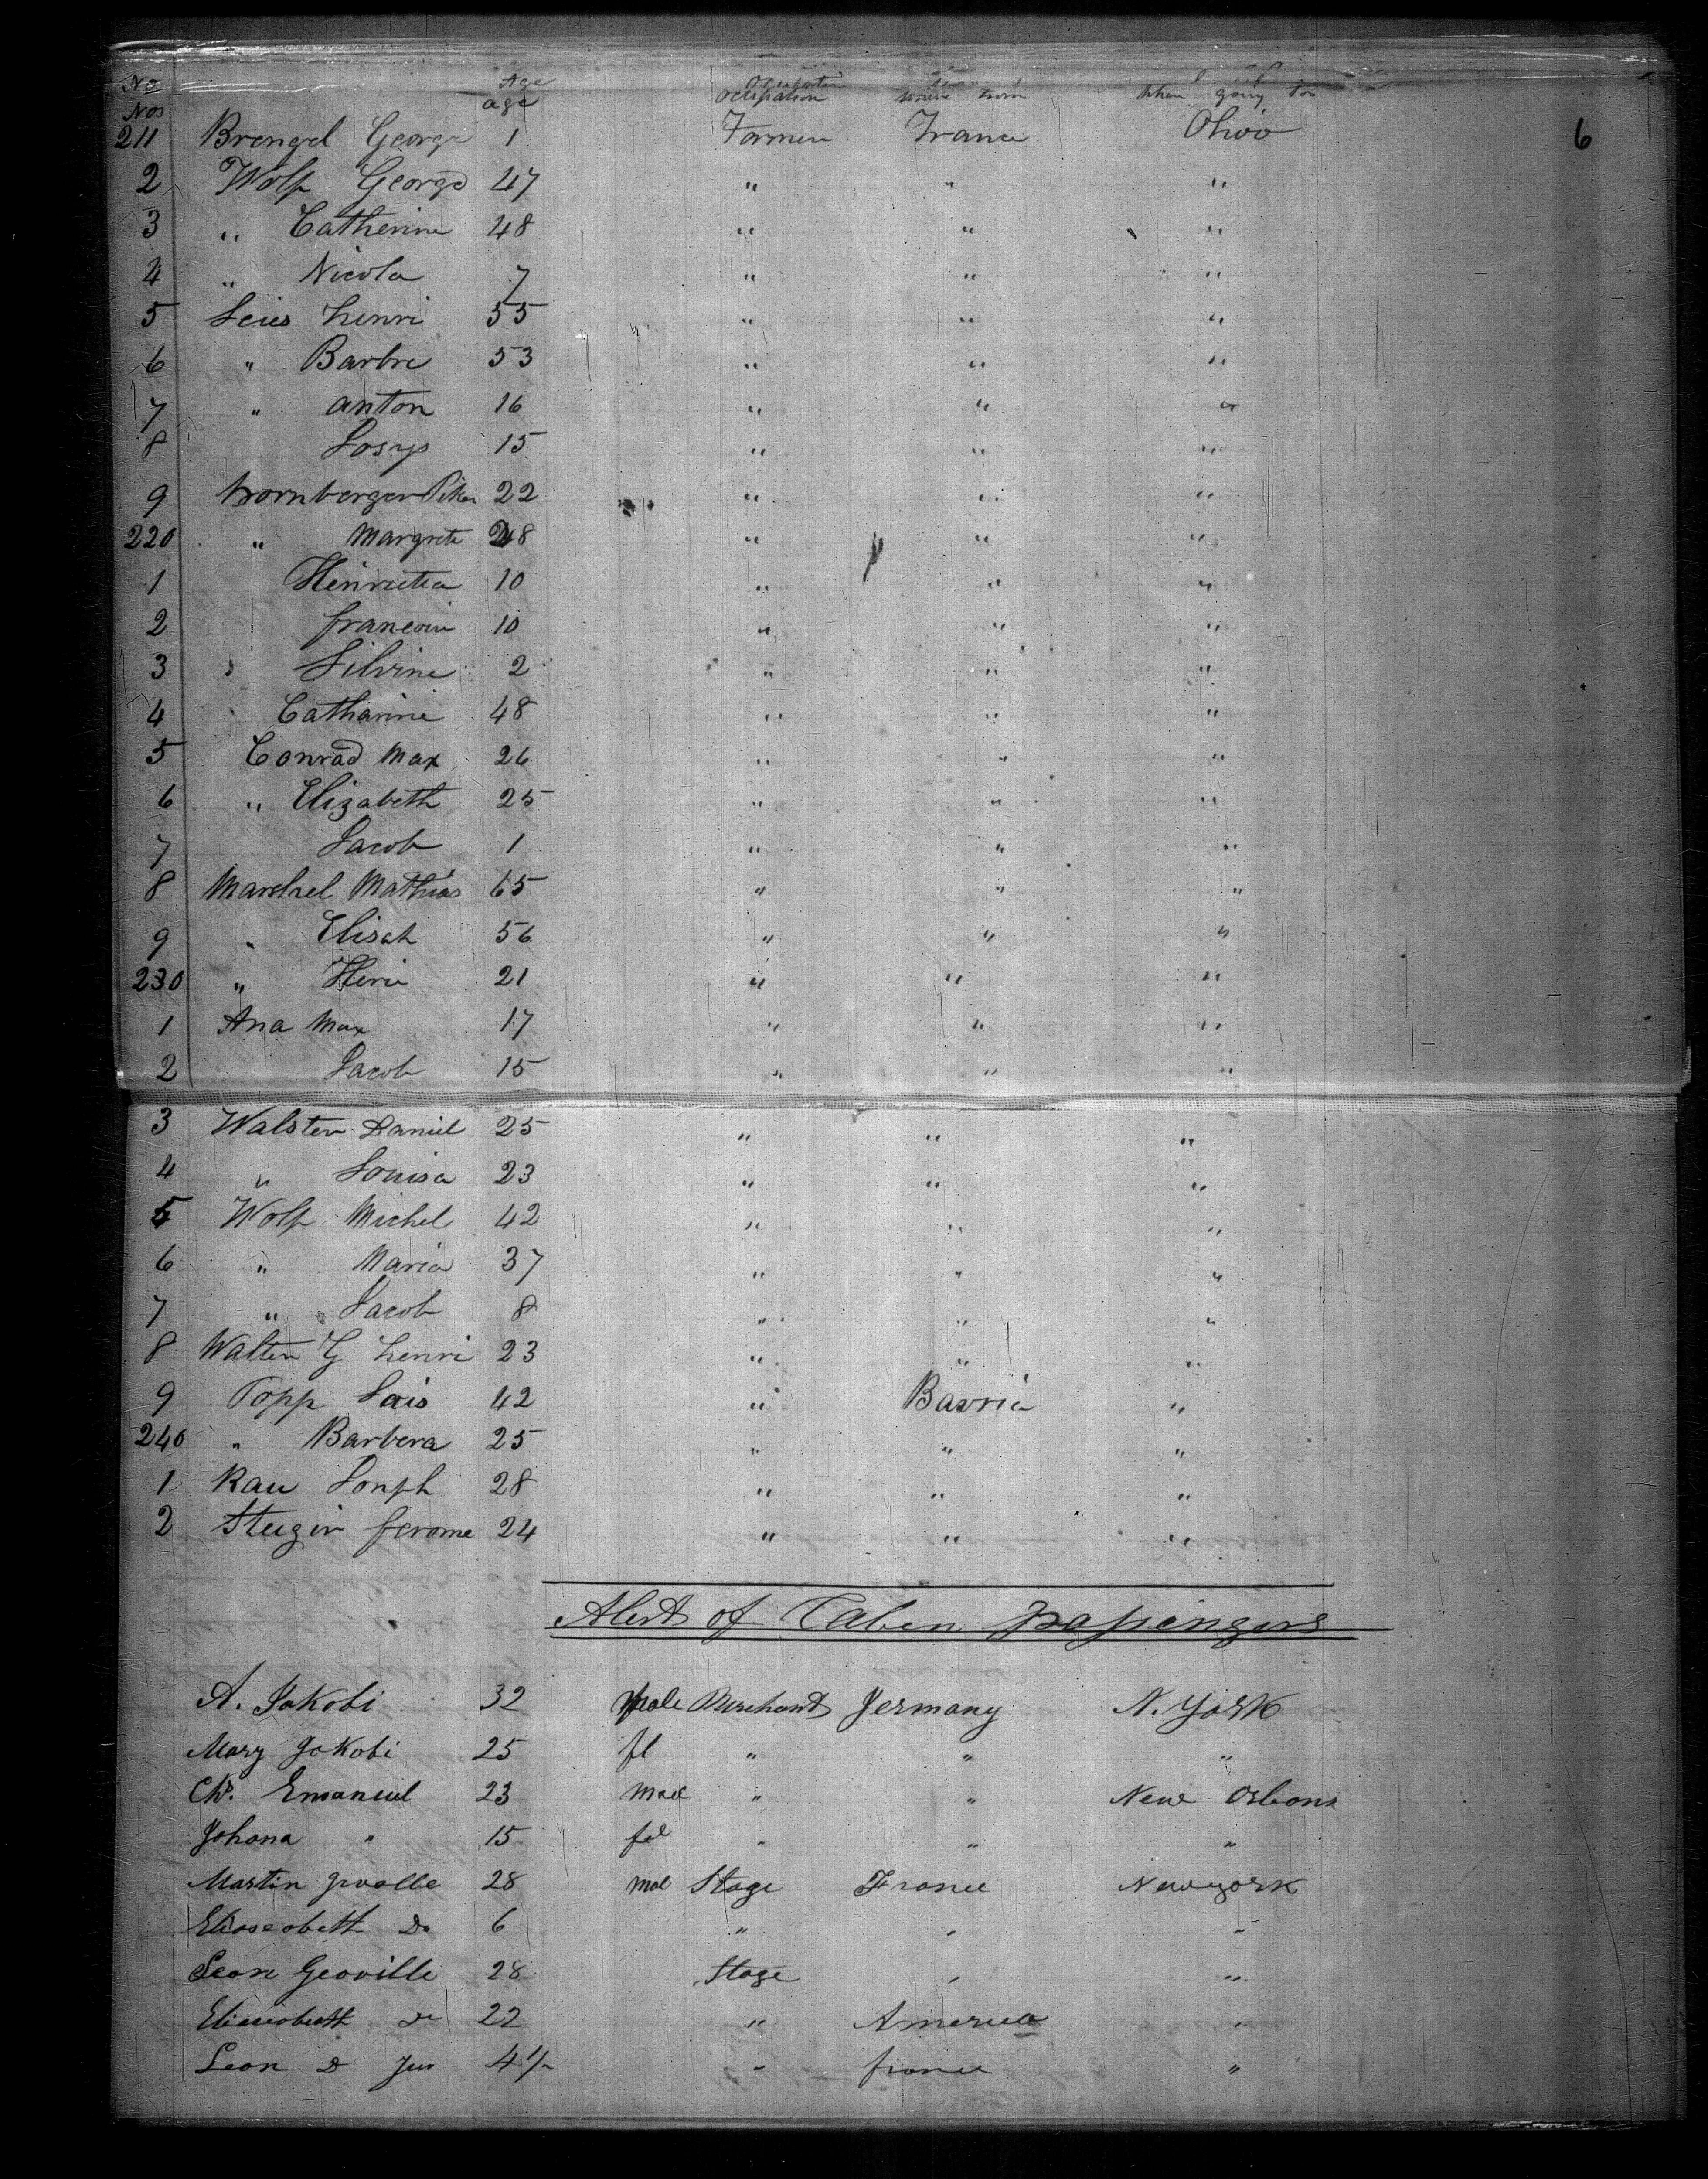 No Age
Nos age ocupation where from When going to
211 Brengel George 1 Farmer France Ohio 6
2 Wolf George 47 " " "
3 " Catherine 48 " " "
4 " Nicola 7 " " "
5 Leies henri 55 " " "
6 " Barbre 53 " " "
7 " anton 16 " " "
8 Josys 15 " " "
9 hornberger Piter 22 " " "
220 " Margrete 28 " " "
1 Henrietta 10 " " "
2 francois 10 " " "
3 " Silvine 2 " " "
4 Catharine 48 " " "
5 Conrad Max 26 " " "
6 " Elizabeth 25 " " "
7 Jacob 1 " " "
8 Marshel Mathias 65 " " "
9 " Elisah 56 " " "
230 " Henri 21 " " "
1 Ana Max 17 " " "
2 Jacob 15 " " "
3 Walster Daniel 25 " " "
4 " Louisa 23 " " "
5 Wolf Michel 42 " " "
6 " Maria 37 " " "
7 " Jacob 8 " " "
8 Walter G henri 23 " " "
9 Popp Lois 42 " Bavria "
240 " Barbera 25 " " "
1 Rau Joseph 28 " " "
2 Steigir ferome 24 " " "
Alist of Caben passengers
A. Jakobi 32 Male Merchant Germany N. York
Mary Jakobi 25 fl " " "
Chr. Emanuel 23 Mael " " New Orleans
Johana " 15 fel " " "
Martin 28 mal Stage France Newyork
Elioseabett Do 6 " " "
Leon Geoville 28 Stage " "
Eliaseabett Do 22 " America "
Leon D Jur 4 1/2 " france "